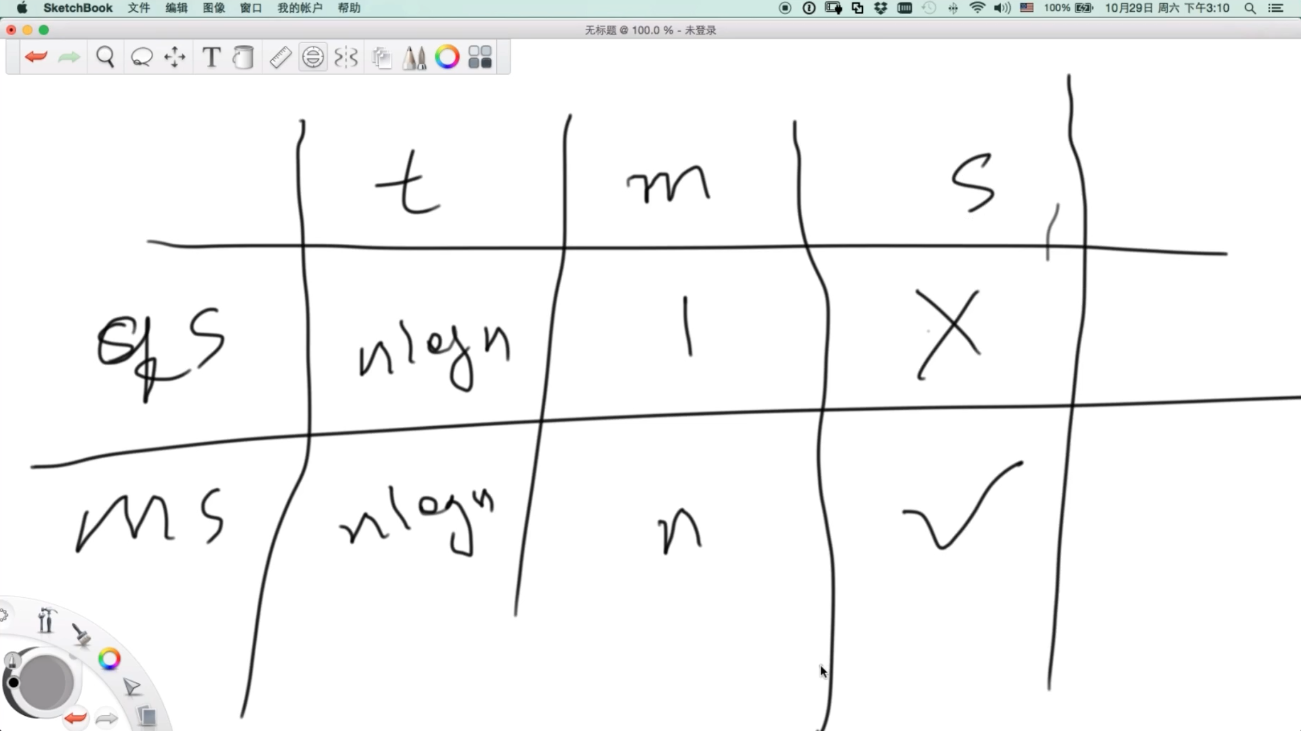 SketchBook 文件 编辑 图像 窗口 我的帐户 帮助 100% 10月29日 周六 下午3:10
无标题 @ 100.0 % - 未登录
T
t m s
qs nlogn 1 X
ms nlogn n ✓